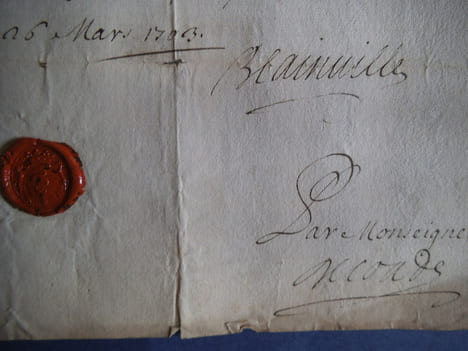 26 Mars 1703.
Blainville
Par Monseigne